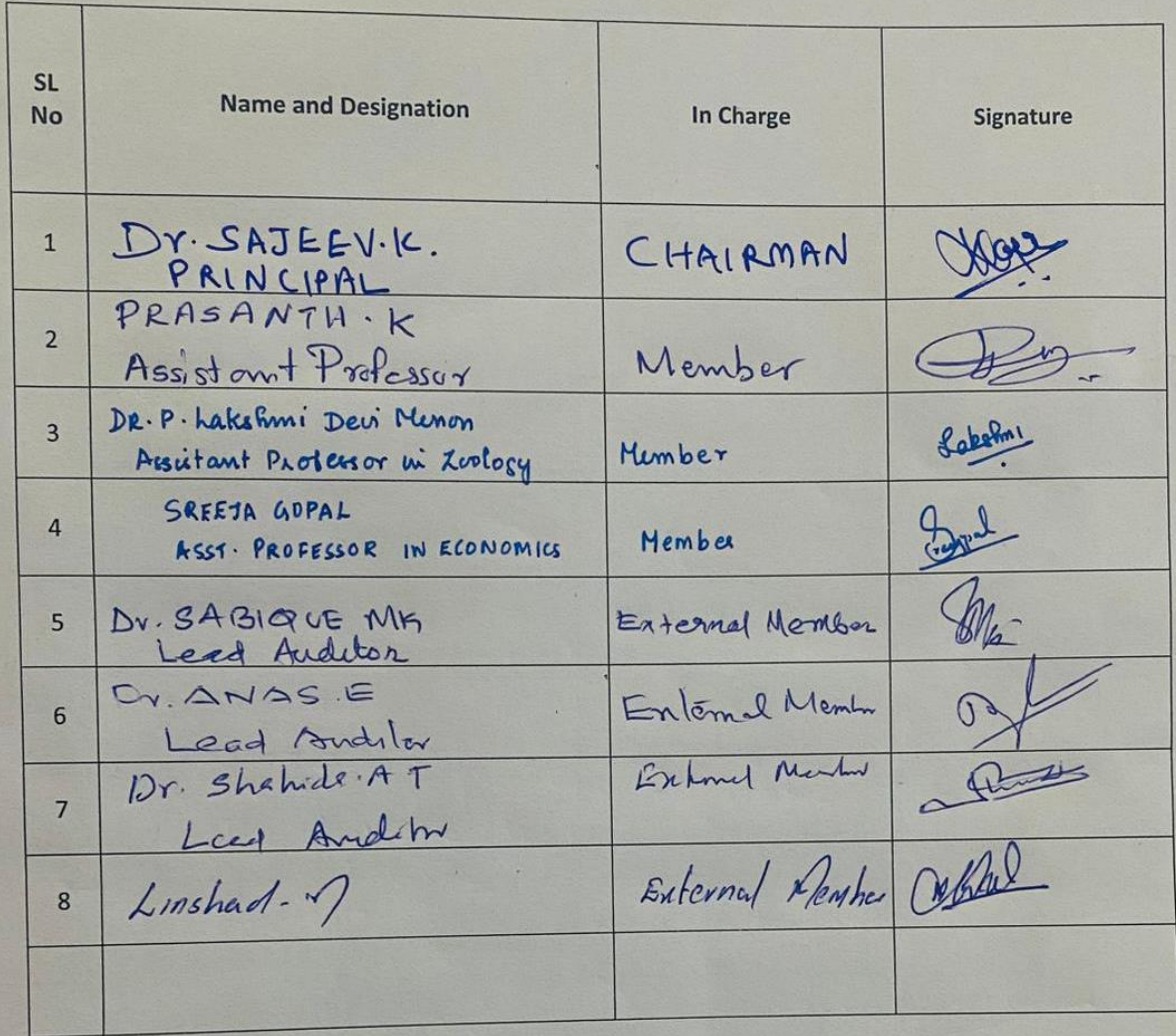 SL
No
Name and Designation
In Charge
Signature
1
Dr. SAJEEV.K.
PRINCIPAL
CHAIRMAN
2
PRASANTH.K
Assistant Professor
Member
3
DR. P. Lakshmi Devi Menon
Assistant Professor in Zoology
Member
Lakshmi
4
SREEJA GOPAL
ASST. PROFESSOR IN ECONOMICS
Member
5
Dr. SABIQUE MK
Lead Auditor
External Member
6
Dr. ANAS.E
Lead Auditor
External Member
7
Dr. Shahide.A T
Lead Auditor
External Member
8
Linshad.
External Member